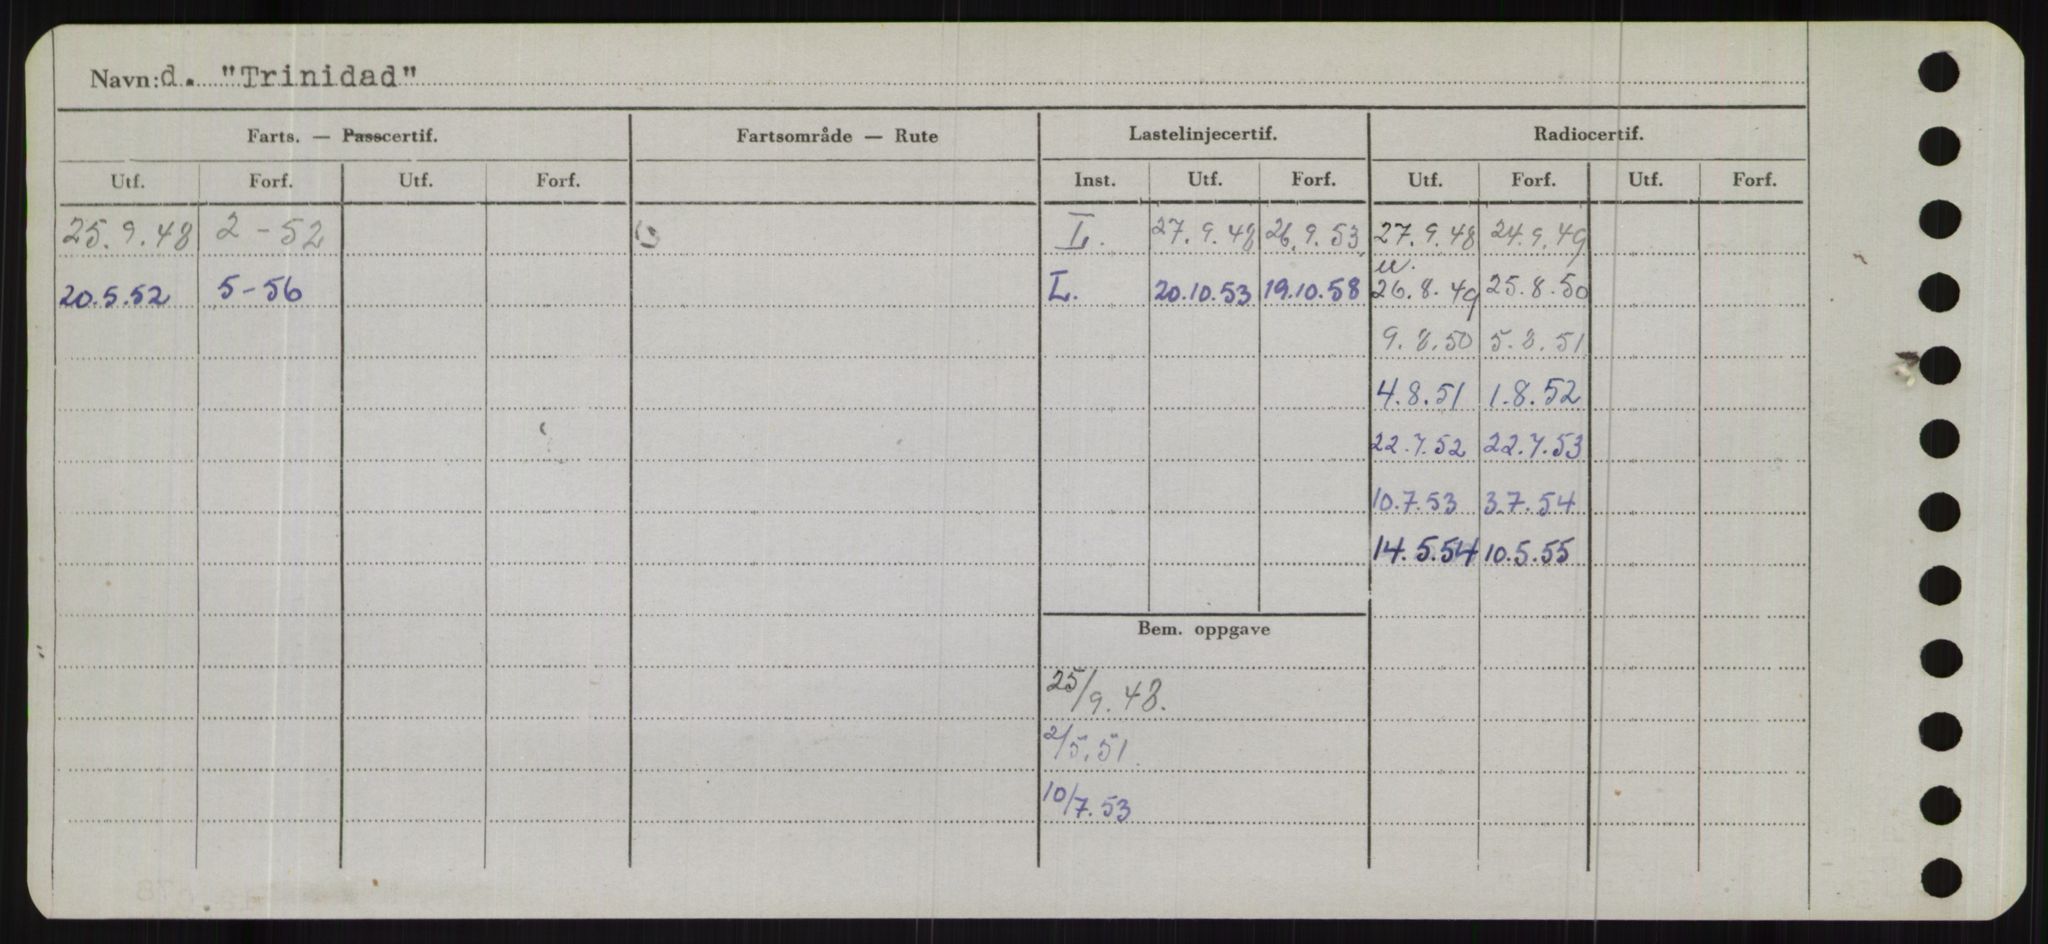 Navn: d. "Trinidad"
Farts. — Passcertif. Fartsområde — Rute Lastelinjecertif. Radiocertif.
Utf. Forf. Utf. Forf. Inst. Utf. Forf. Utf. Forf. Utf. Forf.
25.9.48 2-52 L. 27.9.48 26.9.53 27.9.48 24.9.49
u.
20.5.52 5-56 L. 20.10.53 19.10.58 26.8.49 25.8.50
9.8.50 5.8.51
4.8.51 1.8.52
22.7.52 22.7.53
10.7.53 3.7.54
14.5.54 10.5.55
Bem. oppgave
25/9.48.
2/5.51.
10/7.53